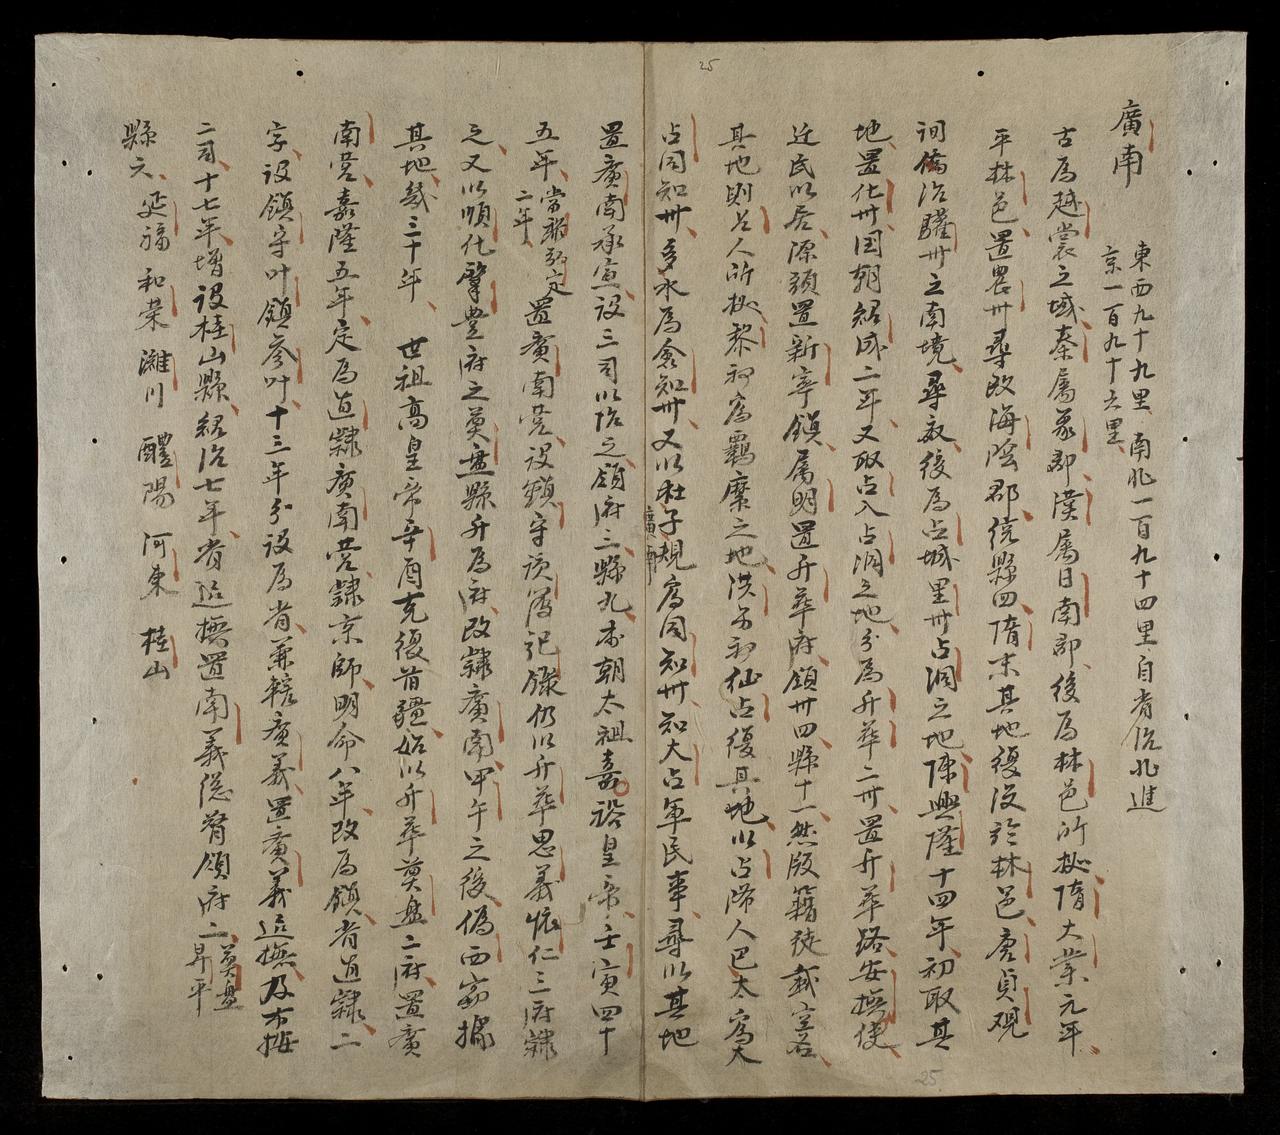 25
廣南
東西九十九里南北一百九十四里自省治北進
京一百九十六里
古為越裳之域秦屬象郡漢屬日南郡後為林邑所據隋大業元年
平林邑置農州尋改海陰郡統縣四隋末其地復沒於林邑唐貞觀
間僑治驩州之南境尋廢後為占城里州占洞之地陳興隆十四年初取其
地置化州国朝紹成二年又取占入占洞之地分為升華二州置升華路安撫使
迁民以居源頭置新寧鎮屬明置升華府領州四縣十一然版籍徒載空名
其地則占人所據黎初為羈縻之地洪
仙占復其地以占降人巴太為大
占同知州多水為僉知州又以杜子規為同知州知大占軍民事尋以其地
廣南
置廣南承宣設三司以治之領府三縣九本朝太祖嘉裕皇帝壬寅四十
五年
二年置廣南營設鎮守該簿記錄仍以升華思義懷仁三府隸
之又以順化肇豐府之奠盤縣升為府改隸廣南甲午之後偽西竊據
其地幾三十年 世祖高皇帝辛酉克復舊疆始以升華奠盤二府置廣
南營嘉隆五年定為直隸廣南營隸京師明命八年改為鎮省直隸二
字設鎮守叶鎮參叶十三年分設為省兼轄廣義置廣義巡撫及布按
二司十七年增設桂山縣紹治七年省巡撫置南義總督領府二
奠盤
昇平
縣六 延福 和榮 濰川 醴陽 河東 桂山
25